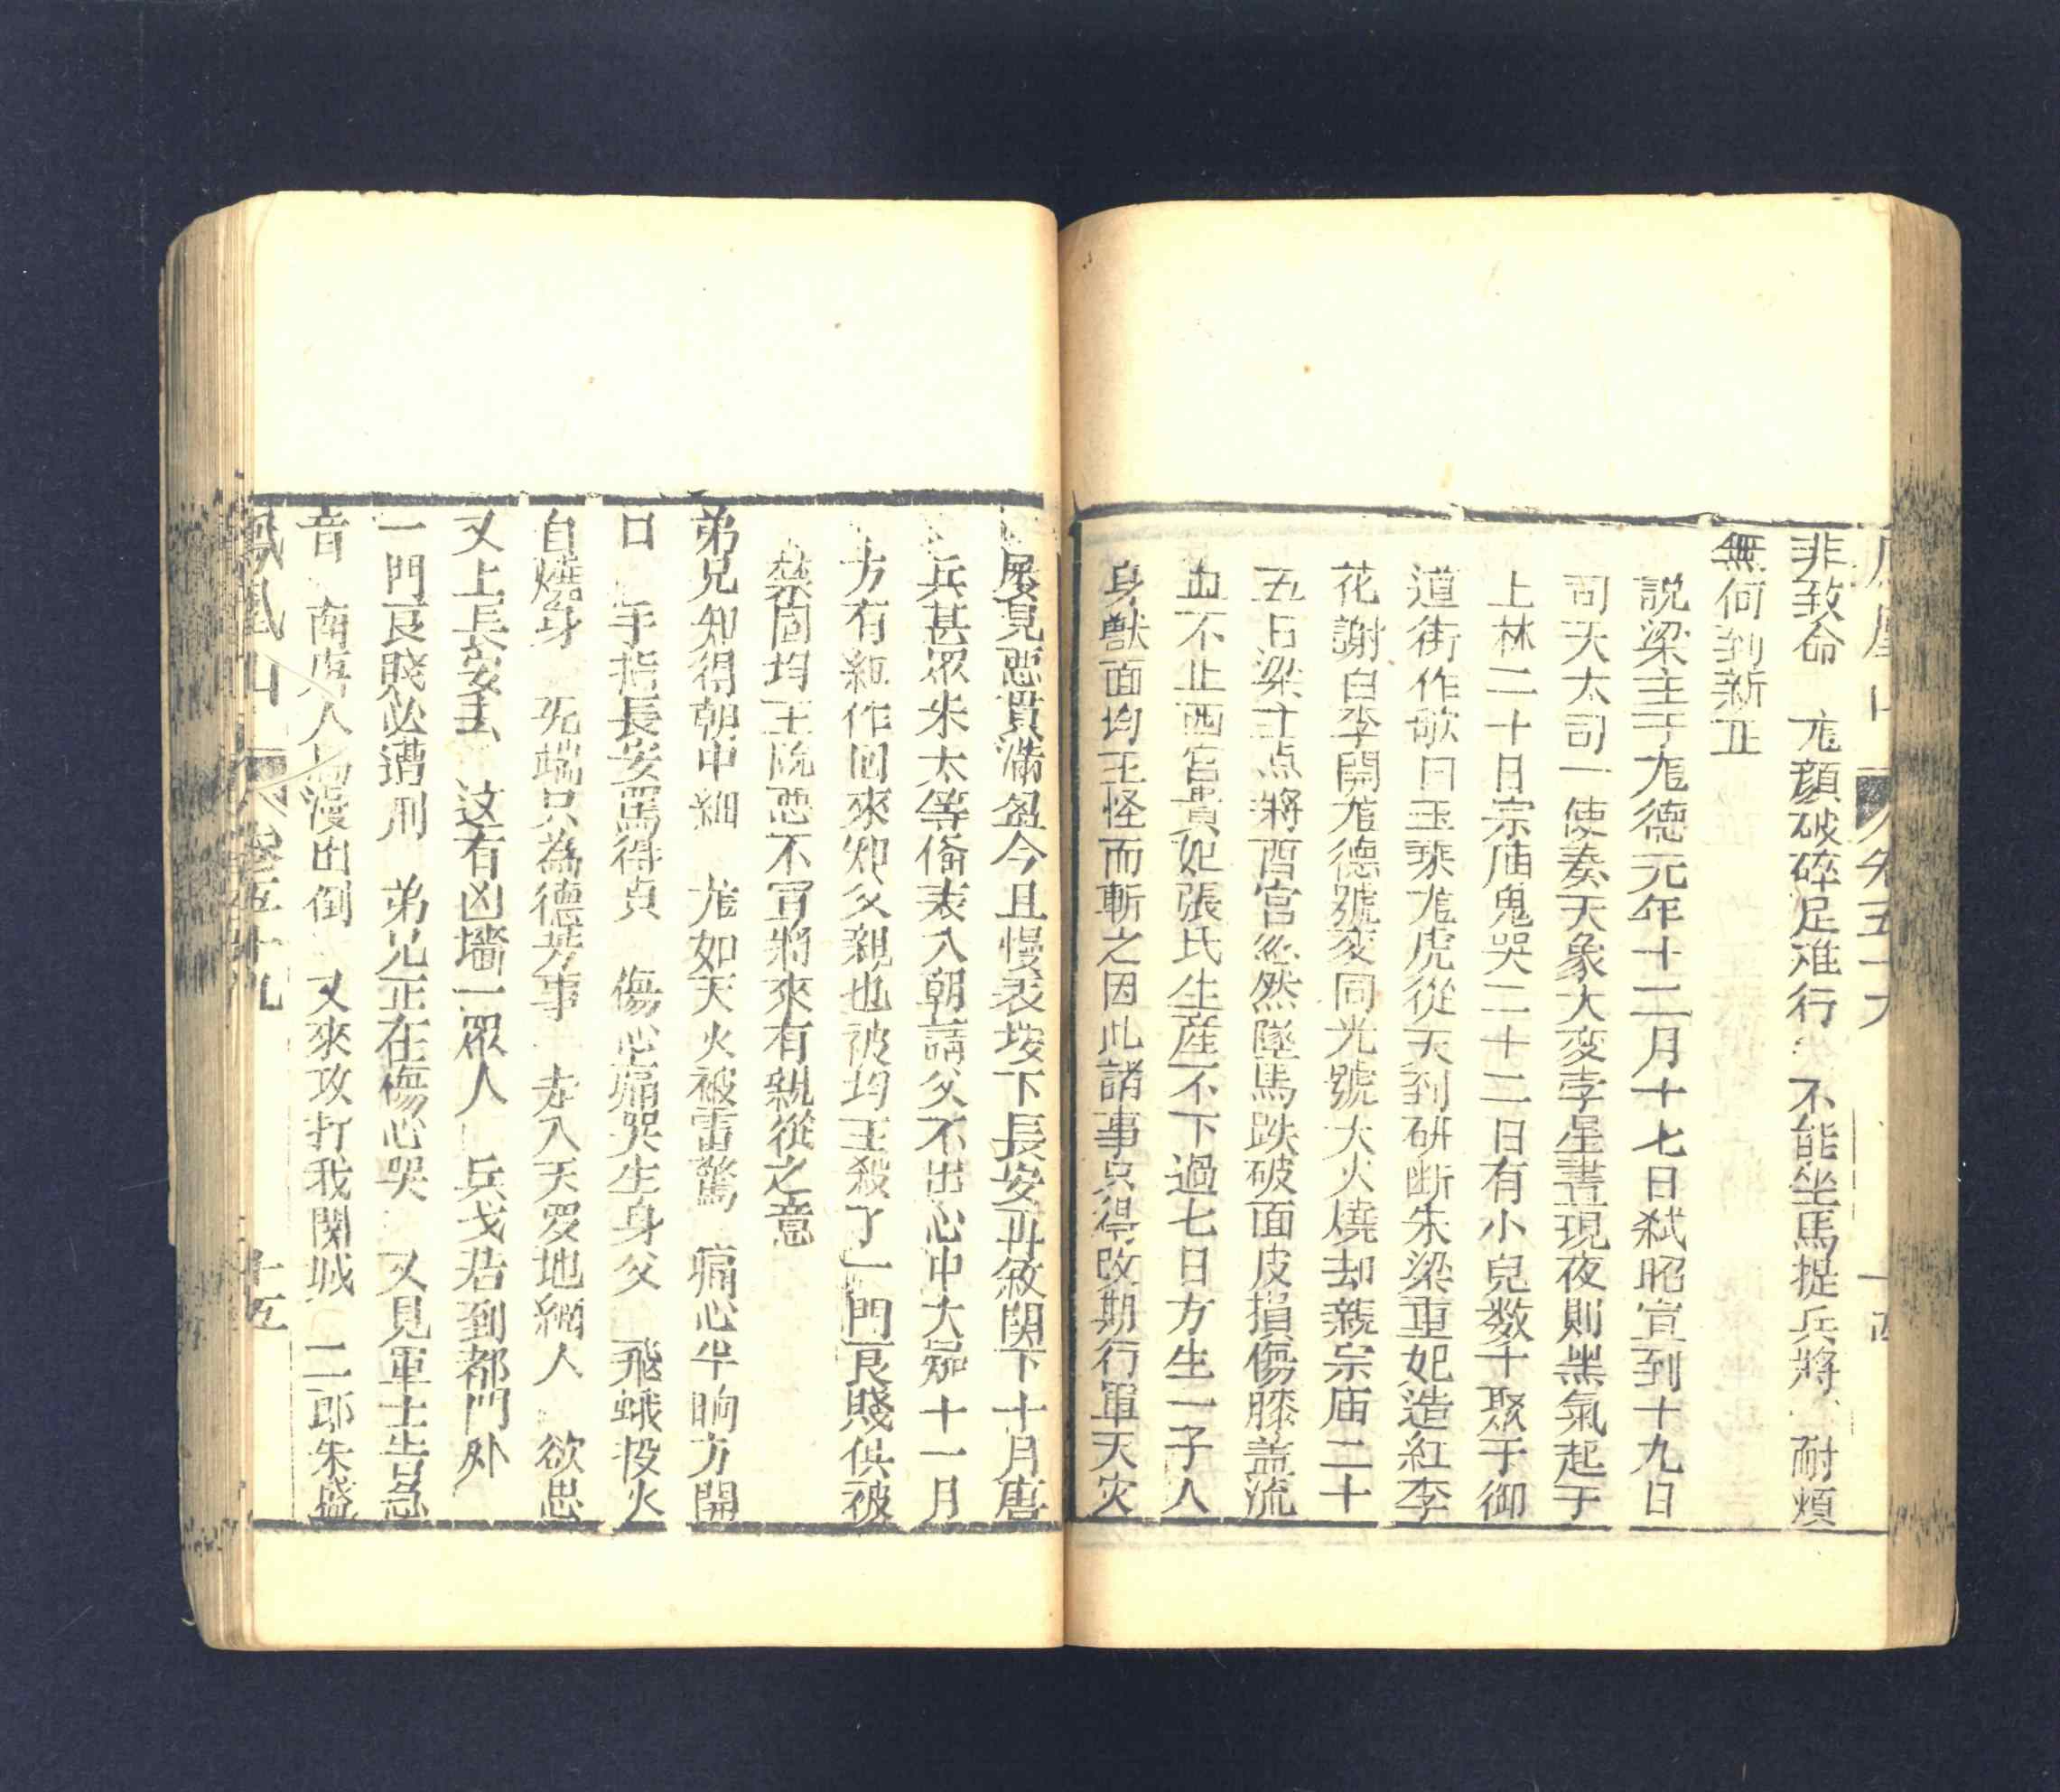 非致命　尨顔破碎足难行　不能坐馬提兵將　耐煩
無何到新正
説梁主于尨德元年十二月十七日弑昭宣到十九日
司天太司一使奏天象大变孛星晝現夜則黑氣起于
上林二十日宗庙鬼哭二十二日有小兒数十聚于御
道街作歌曰玉來尨虎從天到研断朱梁重妃造紅李
花謝白李開尨德號变同光號大火燒却親宗庙二十
五日梁主点將西宫忩然墜馬跌破面皮損傷膝盖流
血不止西宫貴妃張氏生産不下過七日方生一子人
身獸面均王怪而斬之因此諸事只得改期行軍天灾
屡見惡貫滿盈今且慢表按下長安再敘関下十月唐
兵甚眾朱太等偹表入朝請父不出心中大疑十一月
方有細作回來知父親也被均王殺了一門良賤俱被
禁固均王既惡不肯將來有親從之意
弟兄知得朝中細　尨如天火被雷驚　痛心半晌方開
口　手指長安罵得貞　傷心痛哭生身父　飛蛾投火
自燒身　死端只為德芳事　走入天羅地網人　欲思
又上長安去　这有凶墻一眾人　兵戈君到都門外
一門良賤必遭刑　弟兄正在傷心哭　又見軍士告急
音　南唐人馬漫出倒　又來攻打我関城　二郎朱盛
鳳凰山　卷五十九　十五